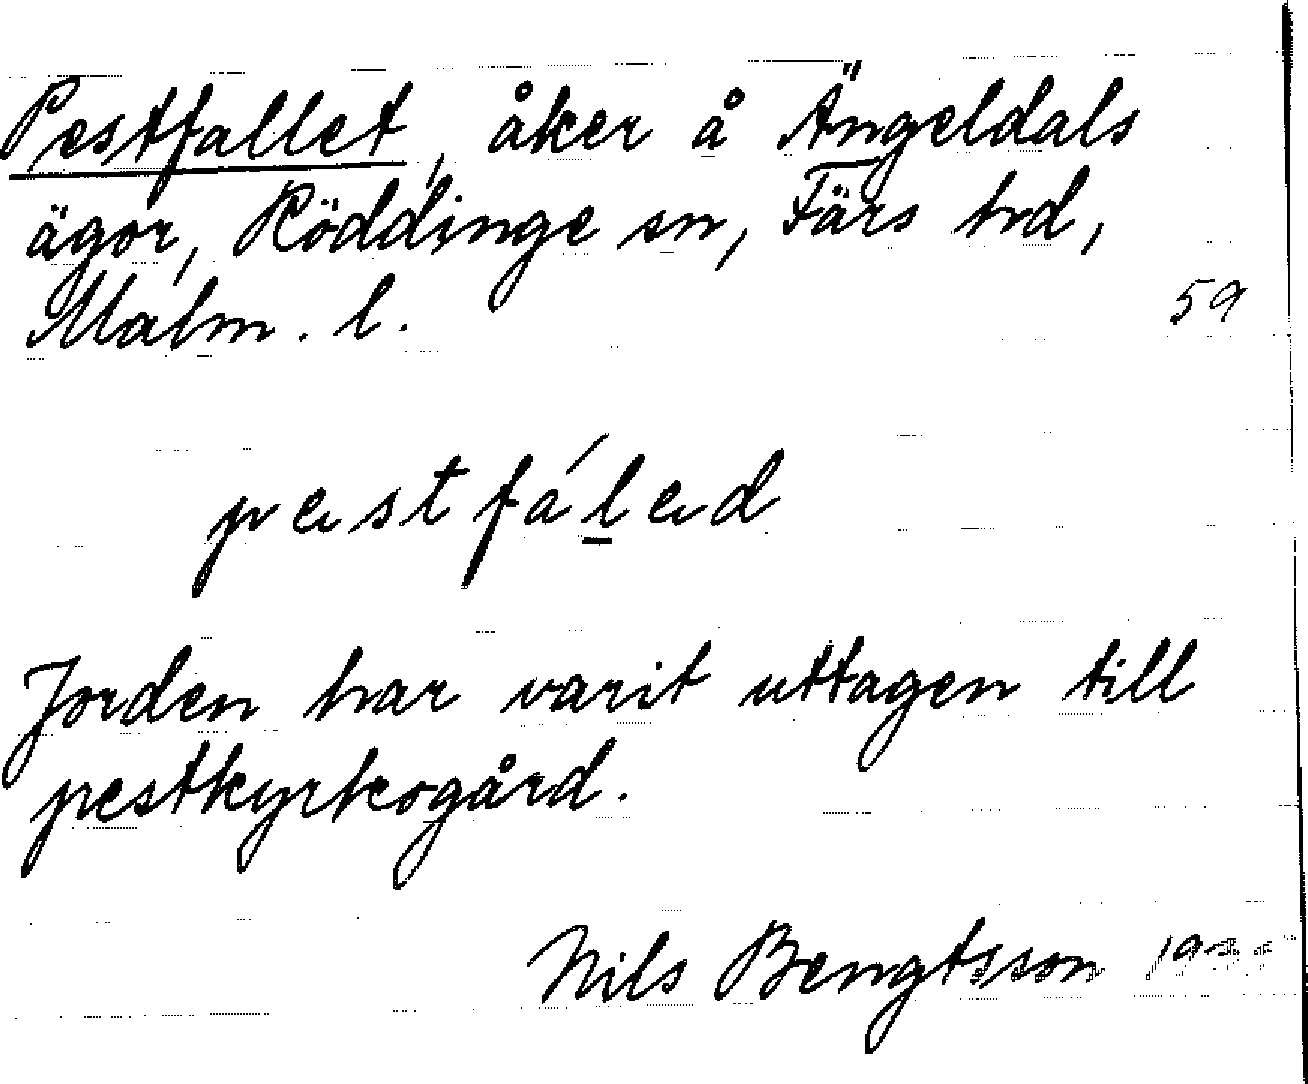 Pestfallet, åker å Ängeldals
ägor, Röddinge sn, Färs hd,
Malm. l.
59
pestfáled
Jorden har varit uttagen till
pestkyrkogård.
Nils Bengtsson